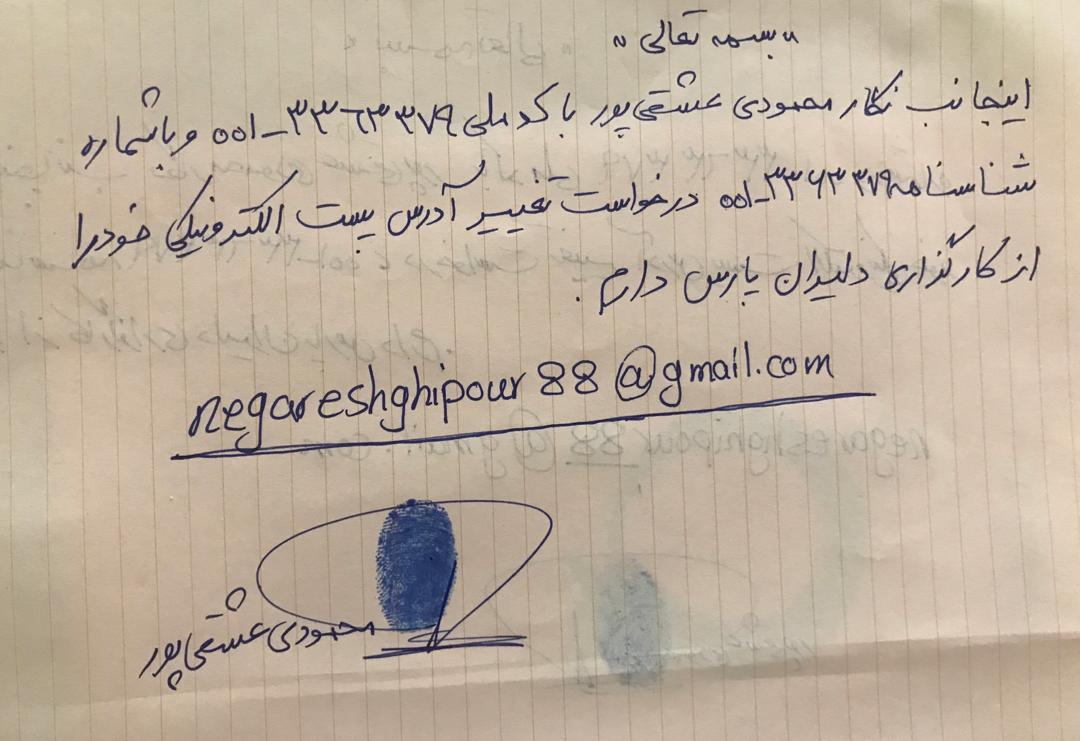 "بسمه تعالی"
اینجانب نگار محمودی عشقی‌پور با کد ملی ۳۳۶۳۳۷۹-۰۰۱ و با شماره
شناسنامه ۳۳۶۳۳۷۹-۰۰۱ درخواست تغییر آدرس پست الکترونیکی خود را
از کارگذاری دلیران پارس دارم.
negareshghipour88@gmail.com
محمودی عشقی‌پور